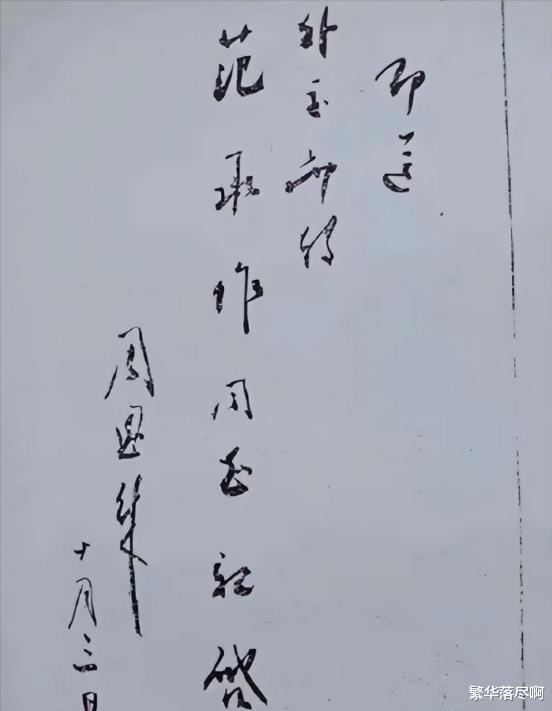 即送
外交部转
范承祚同志亲启
周恩来
十月日
繁华落尽啊